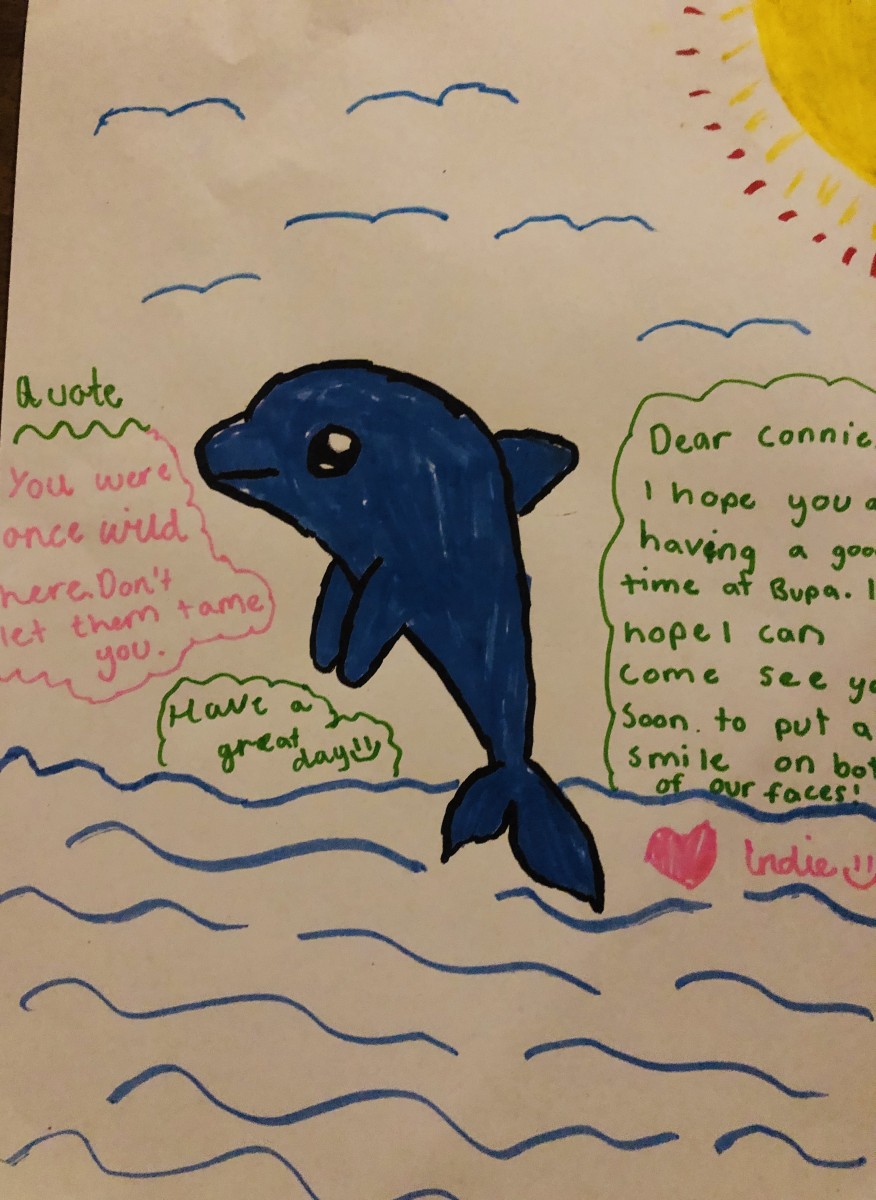 Quote
You were
once wild
here. Don't
let them tame
you.
Have a
great
day
Dear Connie,
I hope you
having a
time at Bupa. I
hope I can
come see
soon. to put a
smile on
of our faces!
Indie